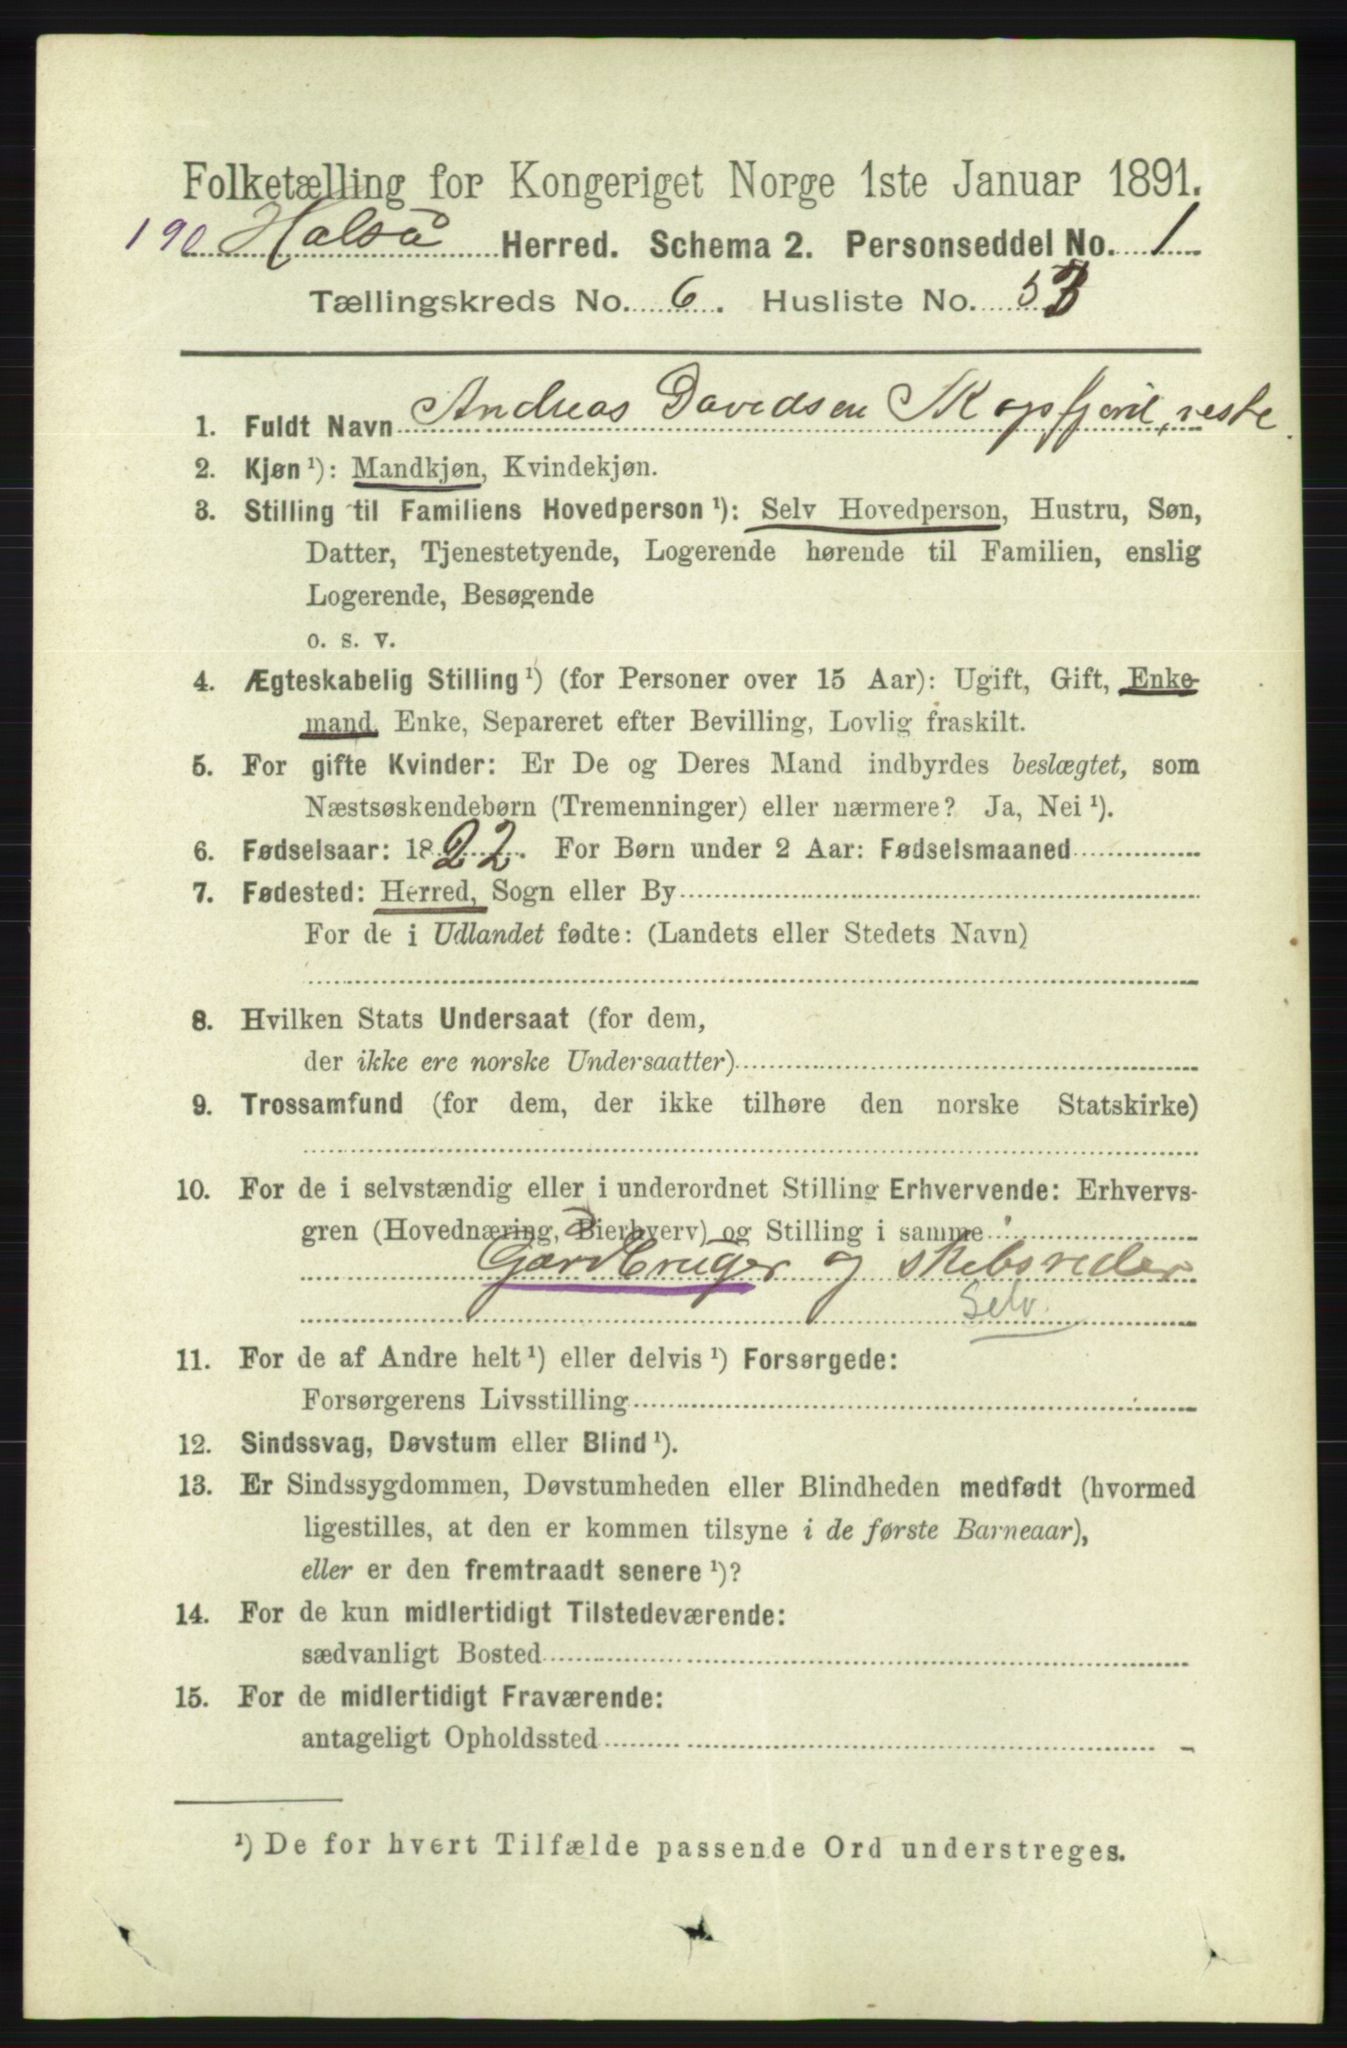 Folketælling for Kongeriget Norge 1ste Januar 1891.
190 Halså Herred. Schema 2. Personseddel No. 1
Tællingskreds No. 6. Husliste No. 53
1. Fuldt Navn Andreas Davidsen Skopfjord, vestre
2. Kjøn ¹): Mandkjøn, Kvindekjøn.
3. Stilling til Familiens Hovedperson ¹): Selv Hovedperson, Hustru, Søn,
Datter, Tjenestetyende, Logerende hørende til Familien, enslig
Logerende, Besøgende
o. s. v.
4. Ægteskabelig Stilling ¹) (for Personer over 15 Aar): Ugift, Gift, Enke-
mand, Enke, Separeret efter Bevilling, Lovlig fraskilt.
5. For gifte Kvinder: Er De og Deres Mand indbyrdes beslægtet, som
Næstsøskendebørn (Tremenninger) eller nærmere? Ja, Nei ¹).
6. Fødselsaar: 1822. For Børn under 2 Aar: Fødselsmaaned
7. Fødested: Herred, Sogn eller By
For de i Udlandet fødte: (Landets eller Stedets Navn)
8. Hvilken Stats Undersaat (for dem,
der ikke ere norske Undersaatter)
9. Trossamfund (for dem, der ikke tilhøre den norske Statskirke)
10. For de i selvstændig eller i underordnet Stilling Erhvervende: Erhvervs-
gren (Hovednæring, Bierhverv) og Stilling i samme
Gardbruger og skibsreder
Selv.
11. For de af Andre helt ¹) eller delvis ¹) Forsørgede:
Forsørgerens Livsstilling
12. Sindssvag, Døvstum eller Blind ¹).
13. Er Sindssygdommen, Døvstumheden eller Blindheden medfødt (hvormed
ligestilles, at den er kommen tilsyne i de første Barneaar),
eller er den fremtraadt senere ¹)?
14. For de kun midlertidigt Tilstedeværende:
sædvanligt Bosted
15. For de midlertidigt Fraværende:
antageligt Opholdssted
¹) De for hvert Tilfælde passende Ord understreges.